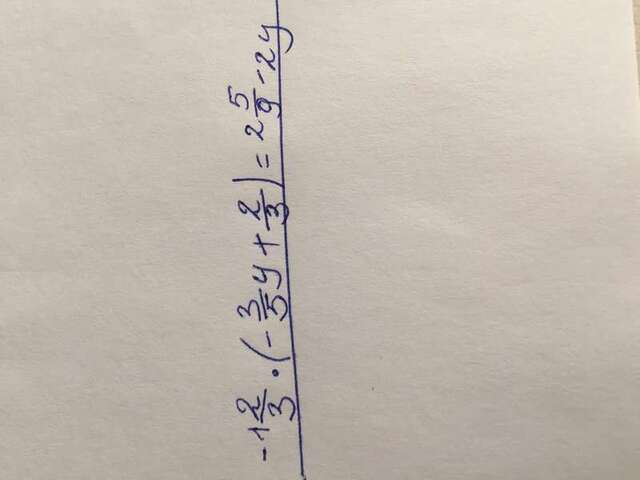 -1 2/3 · (- 3/5 y + 2/3) = 2 5/9 - 2y